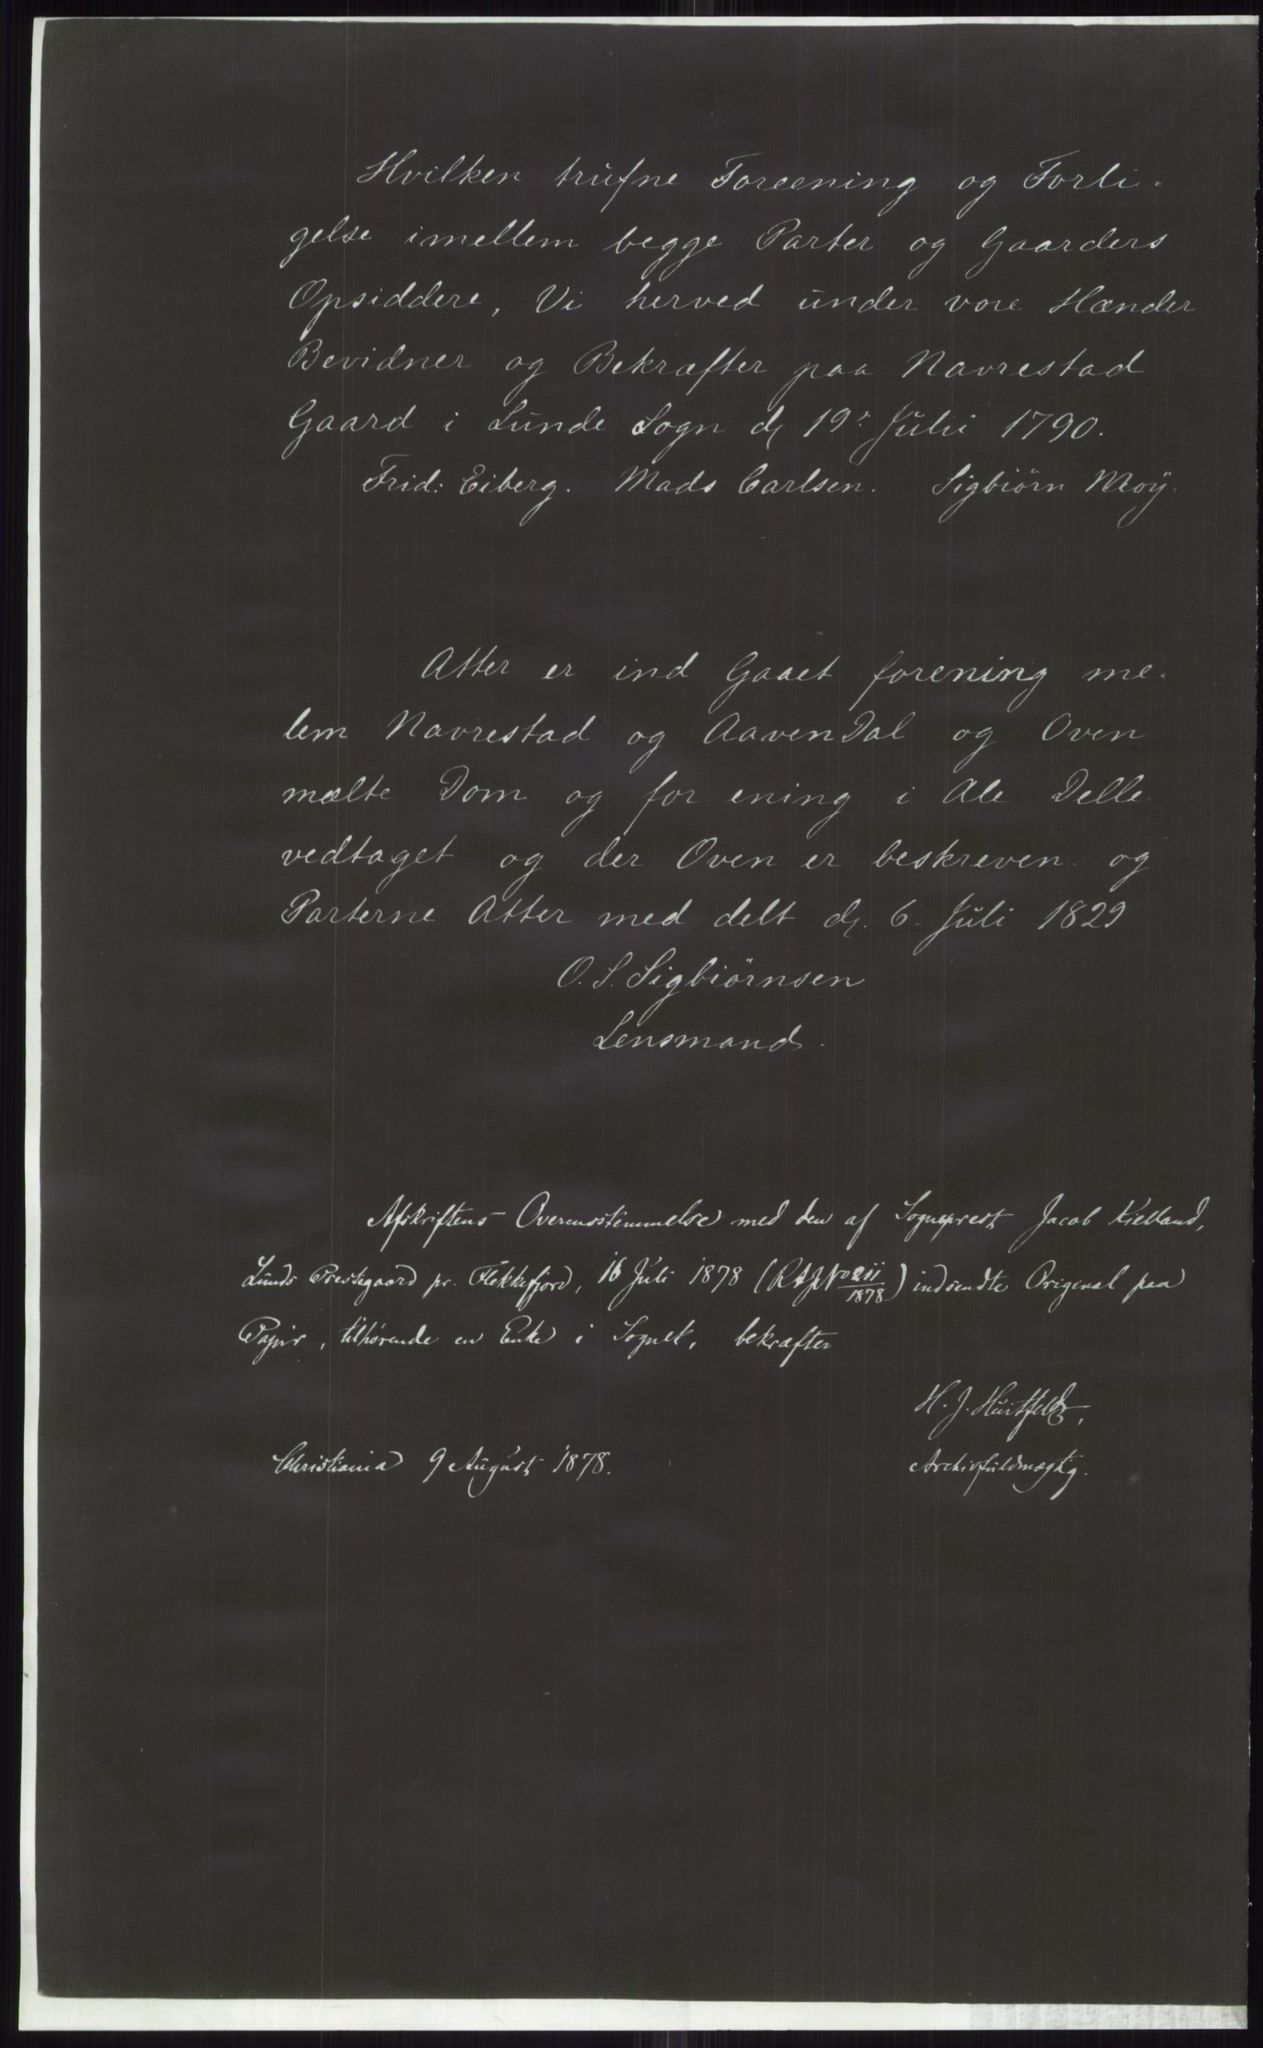 Hvilken trufne Foreening og Forli-
gelse imellem begge Parter og Gaarders
Opsiddere, Vi herved under vore Hænder
Bevidner og Bekræfter paa Navrestad
Gaard i Lunde Sogn d. 19r Julii 1790.
Frid: Eiberg. Mads Carlsen. Sigbiörn Moÿ.
Atter er ind Gaaet forening me-
lem Navrestad og AavenDal og Oven
mælte Dom og for ening i Ale Delle
vedtaget og der Oven er beskreven og
Parterne Atter med delt d. 6. Juli 1829
O. S. Sigbiörnsen
Lensmand.
Afskriftens Overensstemmelse med den af Sogneprest Jacob Kielland,
Lunds Prestegaard pr. Flekkefjord, 16 Juli 1878 (RAJNo 211/1878) indsendte Original paa
Papir, tilhørende en Enke i Sognet, bekræfter
H. J. Huitfeldt,
Christiania 9 August 1878. Archivfuldmægtig.